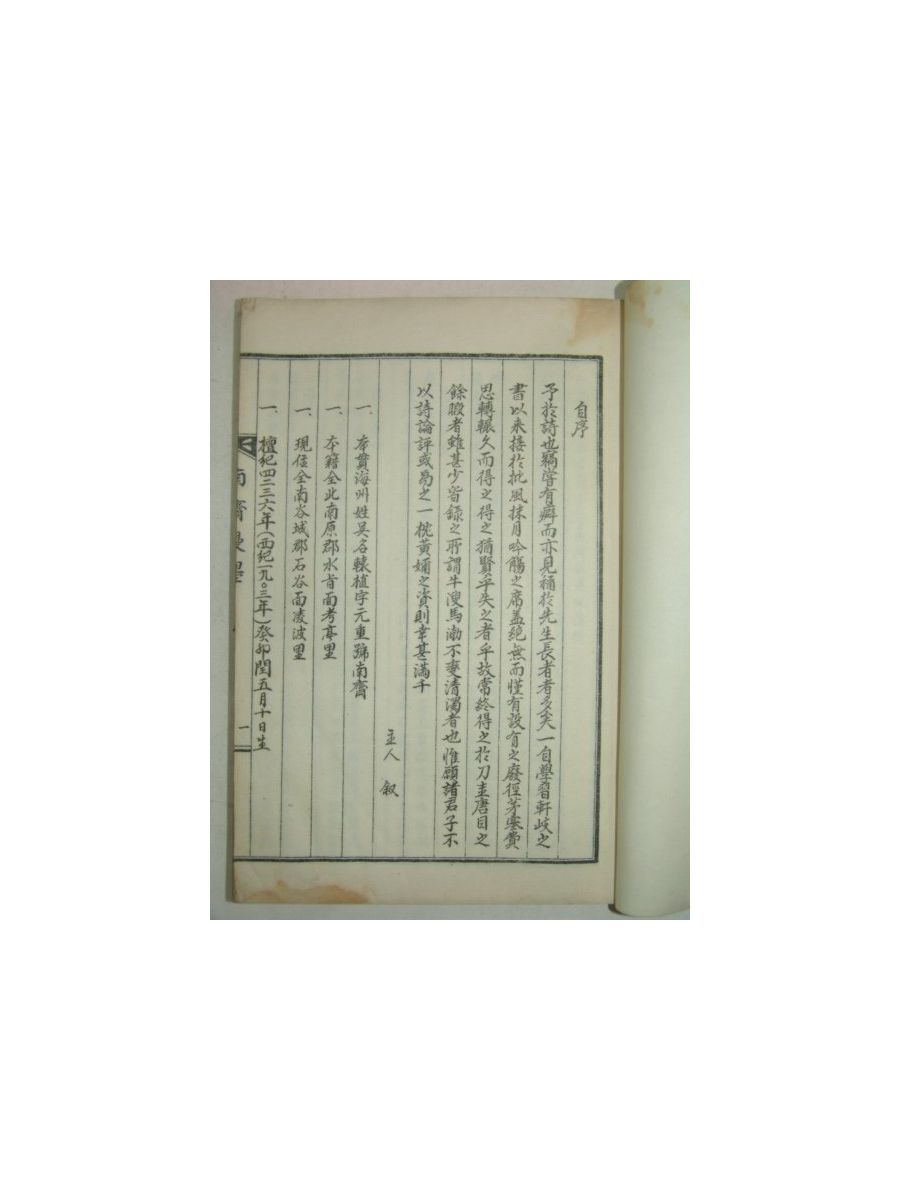 自序
予於詩也竊嘗有癖而亦見稱於先生長者者多矣一自學習軒岐之
書以来接於批風抹月吟觴之席盖絶無而僅有設有之廢徑茅塞費
思轉輾久而得之得之猶賢乎失之者乎故常終得之於刀圭唐目之
餘暇者雖甚少皆録之所謂牛溲馬渤不变清濁者也惟願諸君子不
以詩論評或爲之一椀黄嬭之資則幸甚滿千
主人 叙
一、 本貫海州姓吳名轅植字元重號南齋
一、 本籍全北南原郡水旨面考亭里
一、 現住全南谷城郡石谷面凌波里
一、 檀紀四二三六年(西紀一九〇三年)癸卯閏五月十日生
南齋漫墨
一